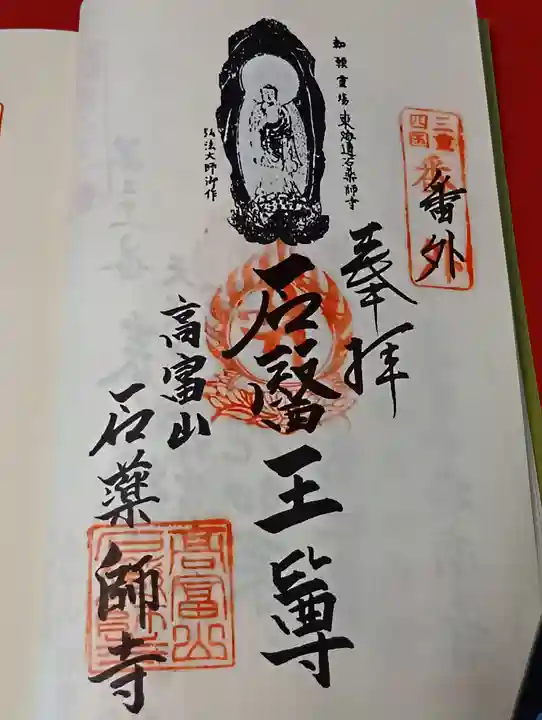 三重
四国
番外
奉拝
勅願霊場 東海道石薬師寺
弘法大師御作
石醫王尊
高富山
石薬師寺
高富山